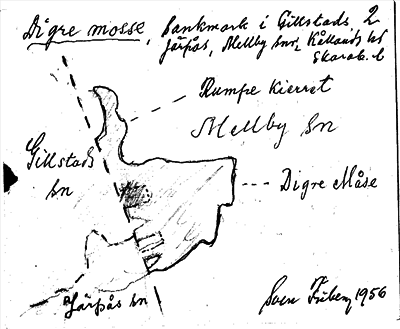 Digre mosse, Sankmark i Gillstads 2
Järpås, Mellby snr, Kållands hd
Skarab. l
Rumpe Kierret
Mellby sn
Gillstads
sn
Digre Måse
Järpås sn
Sven 1956